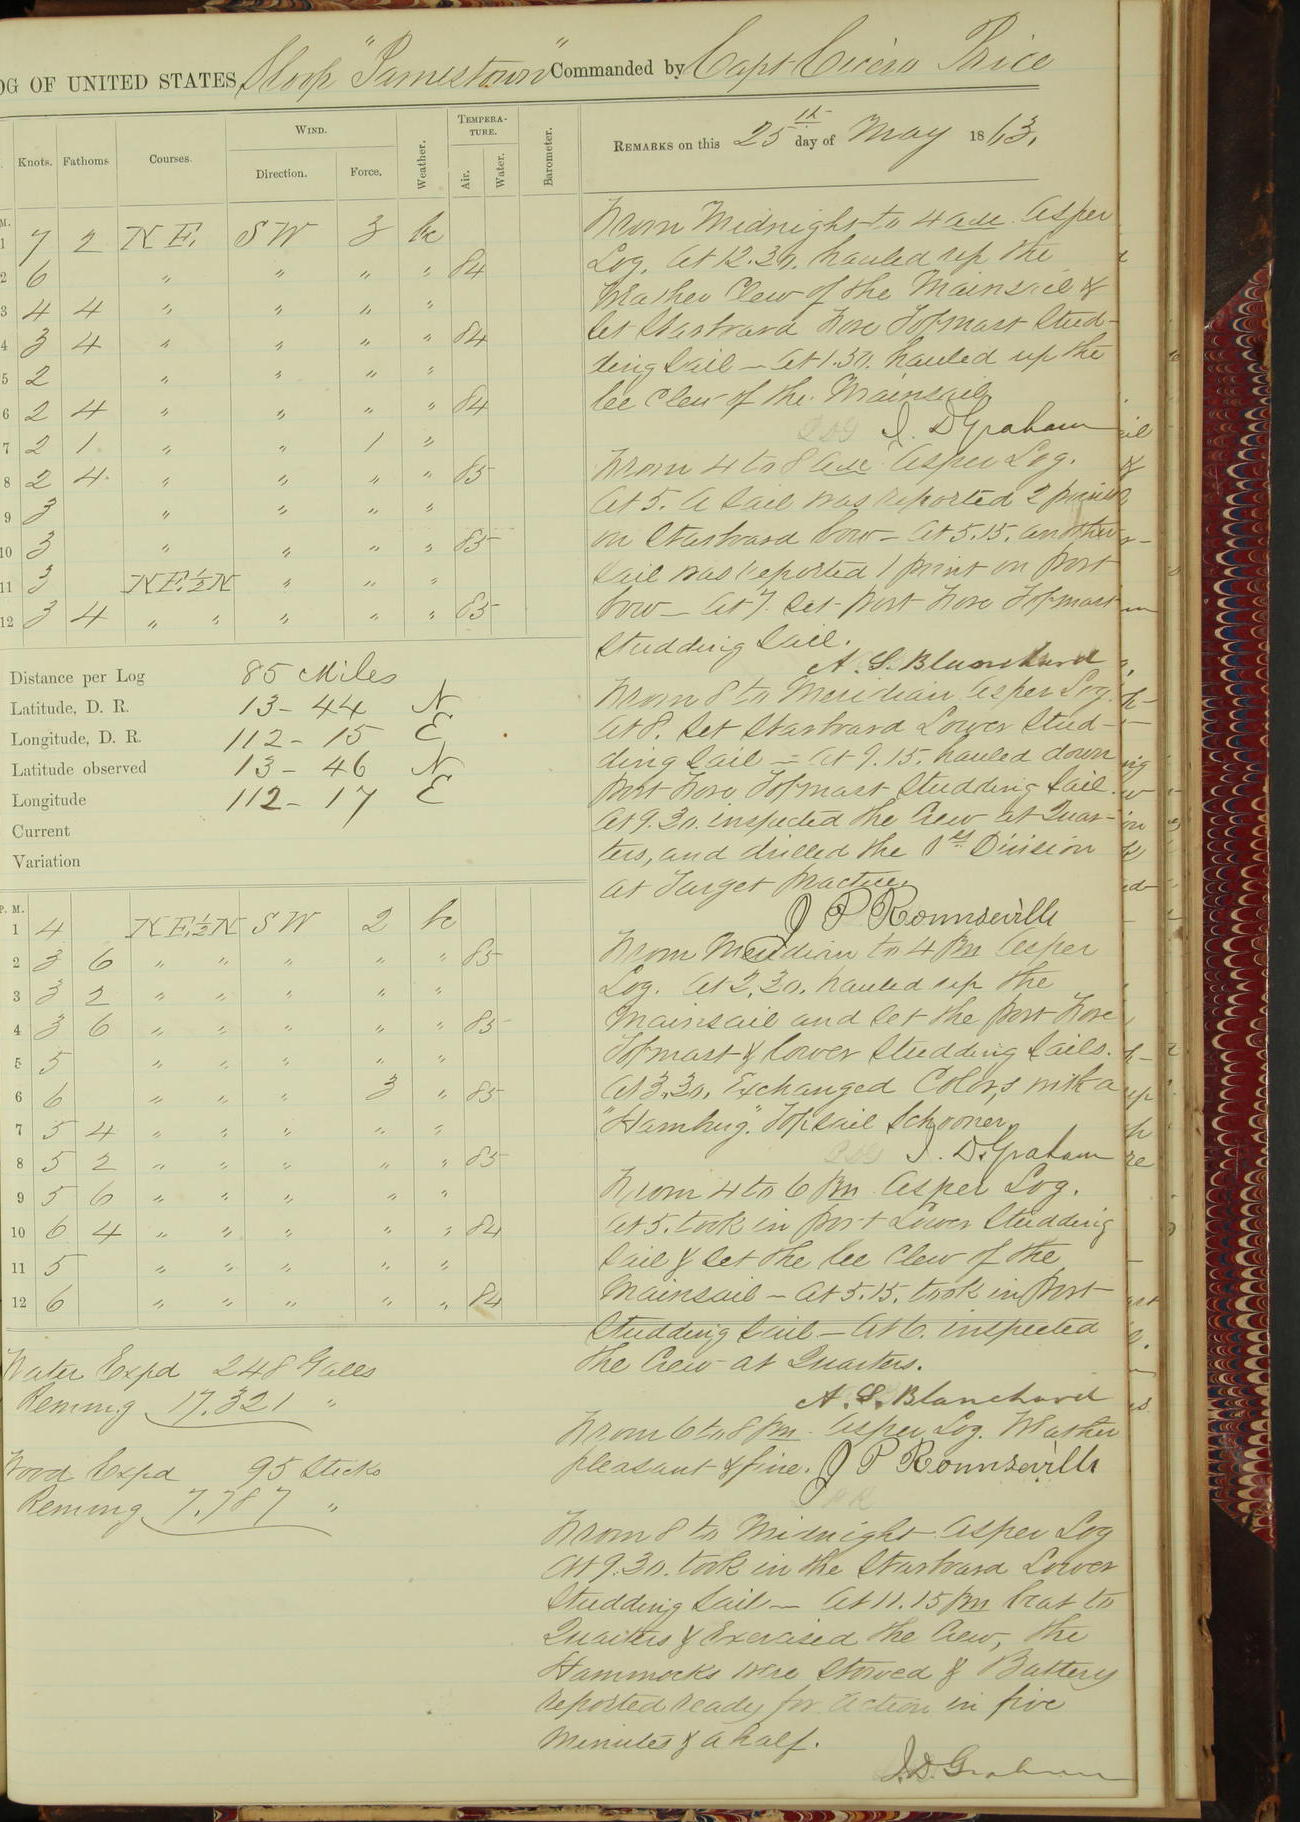 OG OF UNITED STATES Sloop "Jamestown" Commanded by Capt Cicero Price
Knots. Fathoms Courses. WIND. Direction. Force. Weather. TEMPERATURE. Air. Water. Barometer.
REMARKS on this 25th day of May 1863.
M.
1 7 2 NE. SW 3 bc
2 6 " " " " 84
3 4 4 " " " "
4 3 4 " " " " 84
5 2 " " " "
6 2 4 " " " " 84
7 2 1 " " 1 "
8 2 4 " " " " 85
9 3 " " " "
10 3 " " " " 85
11 3 NE.½N " " "
12 3 4 " " " " " 85
Distance per Log 85 Miles
Latitude, D. R. 13- 44 N
Longitude, D. R. 112- 15 E
Latitude observed 13- 46 N
Longitude 112- 17 E
Current
Variation
P. M.
1 4 NE.½N SW 2 bc
2 3 6 " " " " " 85
3 3 2 " " " " "
4 3 6 " " " " " 85
5 5 " " " " "
6 6 " " " 3 " 85
7 5 4 " " " " "
8 5 2 " " " " " 85
9 5 6 " " " " "
10 6 4 " " " " " 84
11 5 " " " " "
12 6 " " " " " 84
Water Expd 248 Galls
Reming 17.321 "
Wood Expd 95 Sticks
Reming 7.787 "
From Midnight to 4 am. As per
Log. At 12.30. hauled up the
Weather Clew of the Mainsail &
Set Starboard Fore Topmast Stud-
ding Sail - At 1.30. hauled up the
lee Clew of the Mainsail
J. D Graham
From 4 to 8 am. As per Log.
At 5. a Sail was reported 2 points
on Starboard bow - At 5.15. another
Sail was reported 1 point on Port
bow - At 7. Set Port Fore Topmast
Studding Sail.
A. S. Blanchard
From 8 to Meridian As per Log.
At 8. Set Starboard Lower Stud-
ding Sail - At 9.15. hauled down
Port Fore Topmast Studding Sail.
At 9.30. inspected the Crew at Quar-
ters, and drilled the 1st Division
at Target practice
J P Rounseville
From Meridian to 4 Pm As per
Log. At 2.30. hauled up the
Mainsail and Set the Port Fore
Topmast & lower Studding Sails.
At 3.30. Exchanged Colors with a
"Hamburg". Topsail Schooner.
J. D. Graham
From 4 to 6 Pm As per Log.
At 5. took in Port Lower Studding
Sail & Set the lee Clew of the
Mainsail - At 5.15. took in Port
Studding Sail - At 6. inspected
the Crew at Quarters.
A. S. Blanchard
From 6 to 8 Pm. As per Log. Weather
pleasant & fine. J P Rounseville
From 8 to Midnight As per Log
At 9.30. took in the Starboard Lower
Studding Sail - At 11.15 Pm beat to
Quarters & Exercised the Crew, the
Hammocks were Stowed & Battery
reported ready for action in five
Minutes & a half.
J. D. Graham